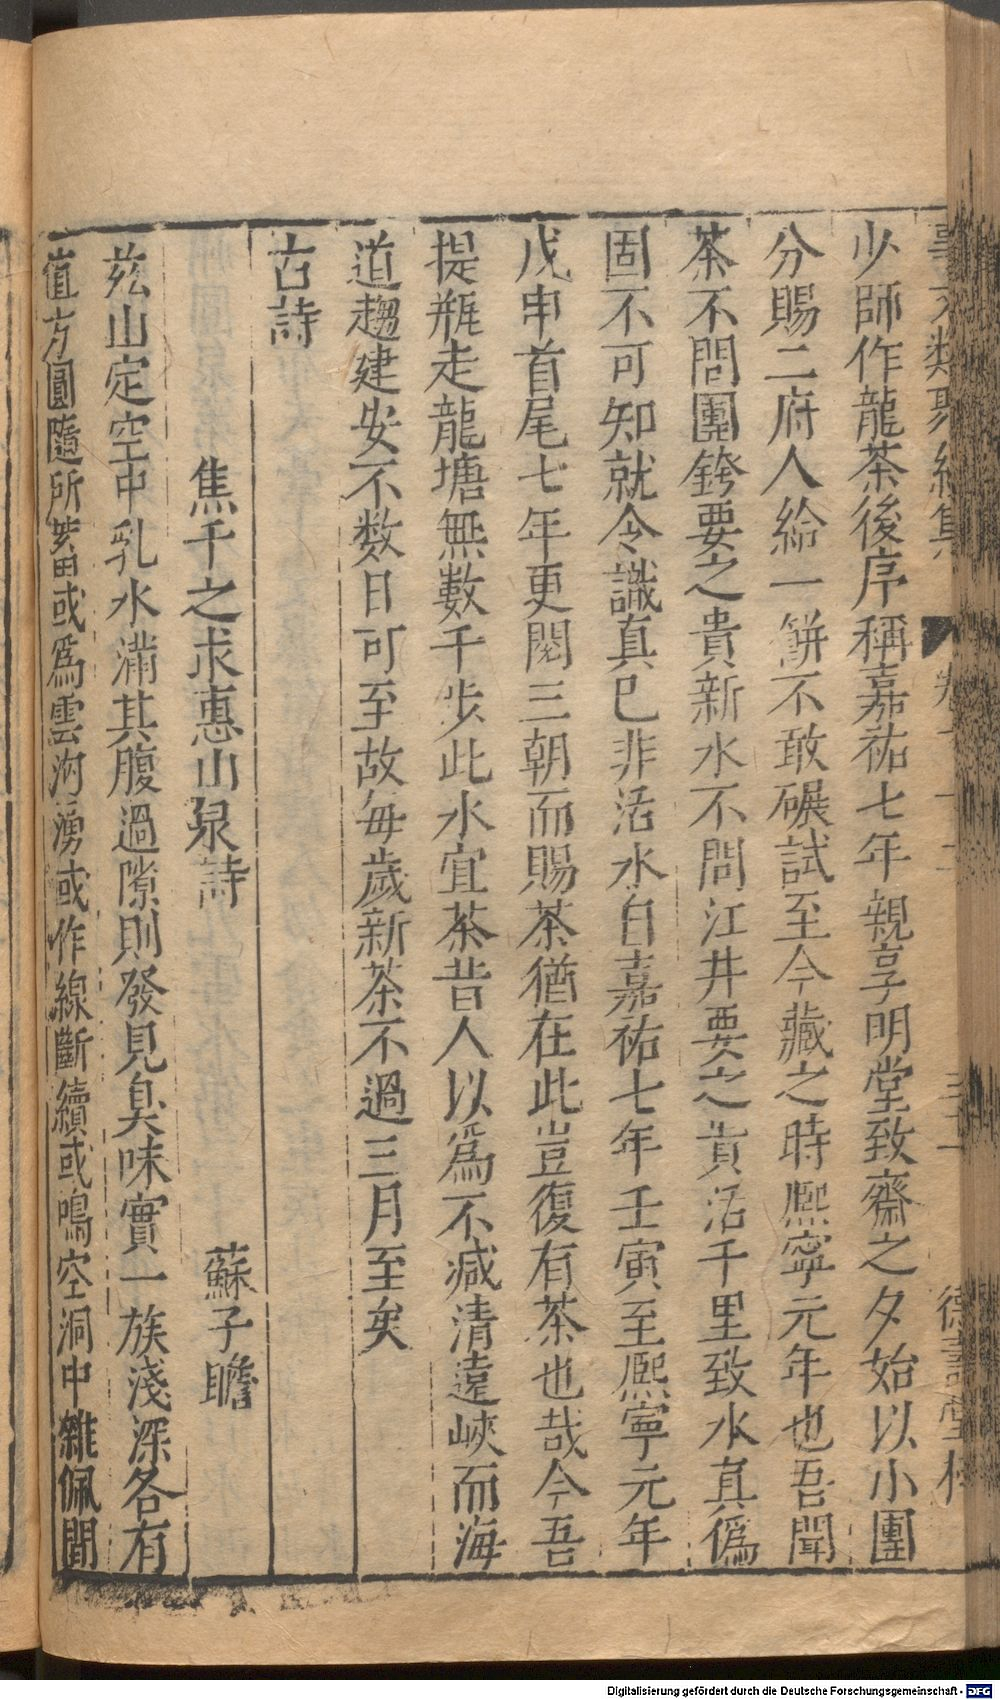 事文類聚續集 卷十二 三十一 德壽堂梓
少師作龍茶後序稱嘉祐七年親享明堂致齋之夕始以小團
分賜二府人給一餅不敢碾試至今藏之時熈寧元年也吾聞
茶不問團銙要之貴新水不問江井要之貴活千里致水真僞
固不可知就令識真已非活水自嘉祐七年壬寅至熈寧元年
戊申首尾七年更閱三朝而賜茶猶在此豈復有茶也哉今吾
提瓶走龍塘無數千步此水宜茶昔人以爲不减清遠峽而海
道趨建安不数日可至故毎歲新茶不過三月至矣
古詩
焦千之求惠山泉詩 蘇子瞻
兹山定空中乳水滿其腹過隙則發見臭味實一族淺深各有
值方圓隨所蓄或爲雲洶湧或作線斷續或鳴空洞中雜佩間
Digitalisierung gefördert durch die Deutsche Forschungsgemeinschaft - DFG